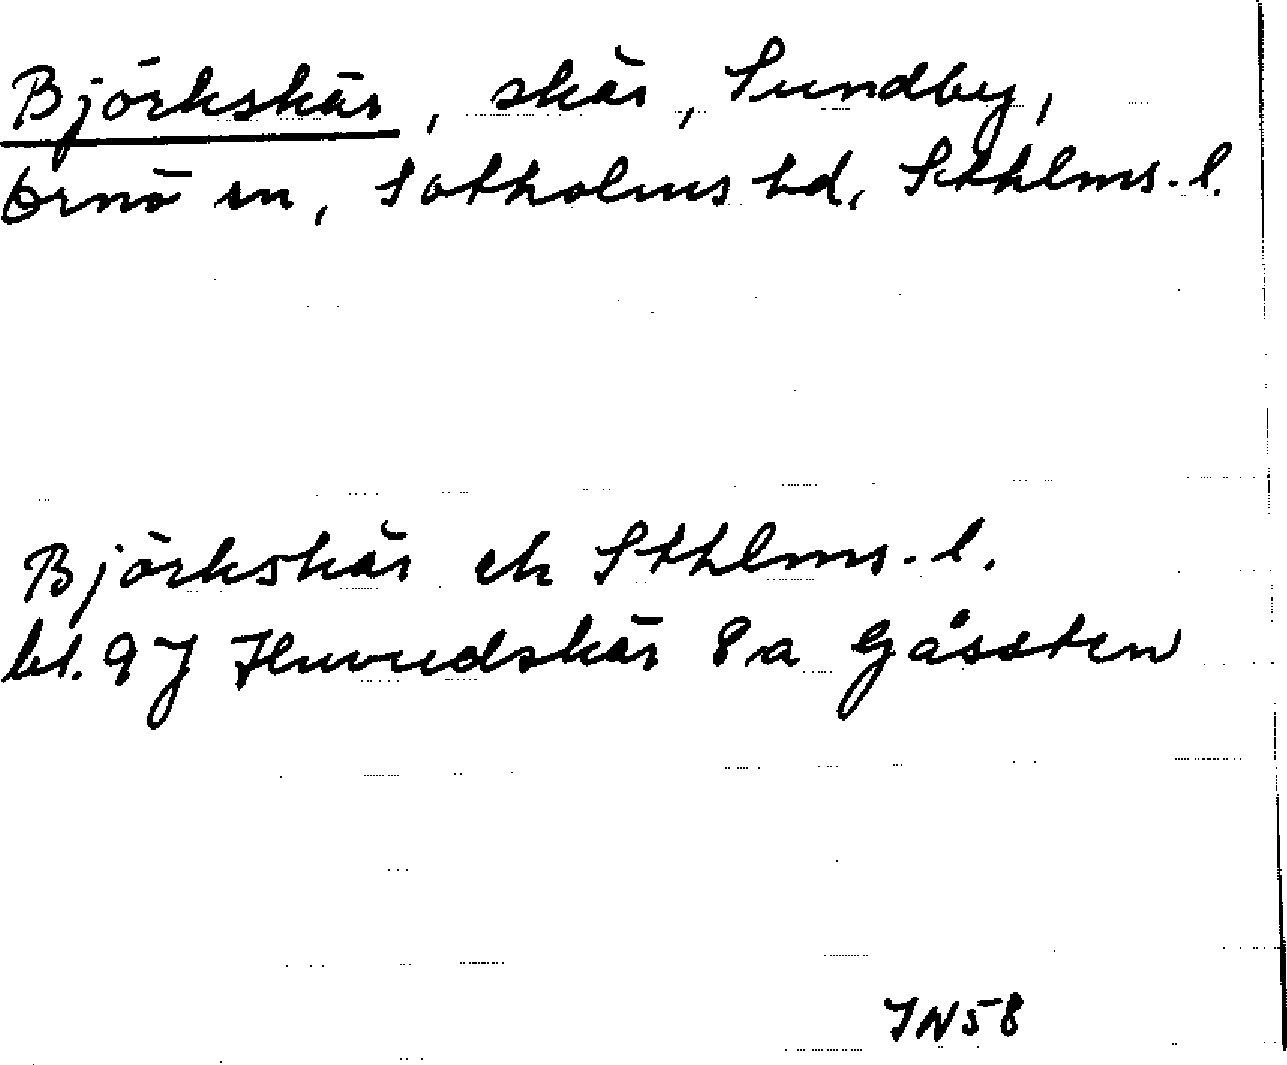 Björkskär, skär, Sundby,
Ornö sn, Sotholms hd, Sthlms. l.
Björkskär ek Sthlms. l.
bl. 9J Huvudskär 8a Gåssten
JN58